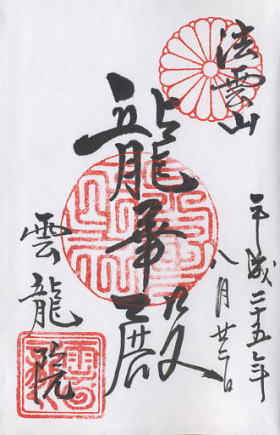 法雲山
平成二十五年
八月廿二日
龍華殿
雲龍院